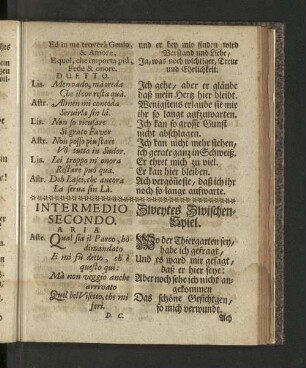 Ed in me troverà Genio,
& Amore,
E quel, che importa più,
Fede & onore.
DUETTO.
Lis. Men vado, mà creda
Che il cor resta quà.
Astr. Almen mi conceda
Servirla sin là.
Lis. Non fo ricusare
Si grato Favor
Astr. Non posso piu stare
Vò tutto in Sudor.
Lis. Lei troppo m' onora
Restare può quà.
Astr. Deh Lasci, che ancora
La serva sin Là.
INTERMEDIO
SECONDO.
ARIA.
Astr. Qual sia il Parco, hò
dimandato
E mi fù detto, ch' è
questo qui:
Mà non veggio anche
arrivato
Quel bel Visetto, che mi
ferì.
D. C.
und er bey mir finden wird
Verstand und Liebe,
Ja, was noch wichtiger, Treue
und Ehrlichkeit.
Ich gehe, aber er glaube
daß mein Herz hier bleibt.
Wenigstens erlaube sie mir
ihr so lange aufzuwarten.
Ich kan so grosse Gunst
nicht abschlagen.
Ich kan nicht mehr stehen,
ich gerate ganz in Schweiß.
Er ehret mich zu viel.
Er kan hier bleiben.
Ach vergönne sie, daß ich ihr
noch so lange aufwarte.
Zweytes Zwischen-
Spiel.
Wo der Thiergarten sey,
habe ich gefragt,
Und es ward mir gesagt,
daß er hier seye:
Aber noch sehe ich nicht an-
gekommen
Das schöne Gesichtgen,
so mich verwundt.
Ach